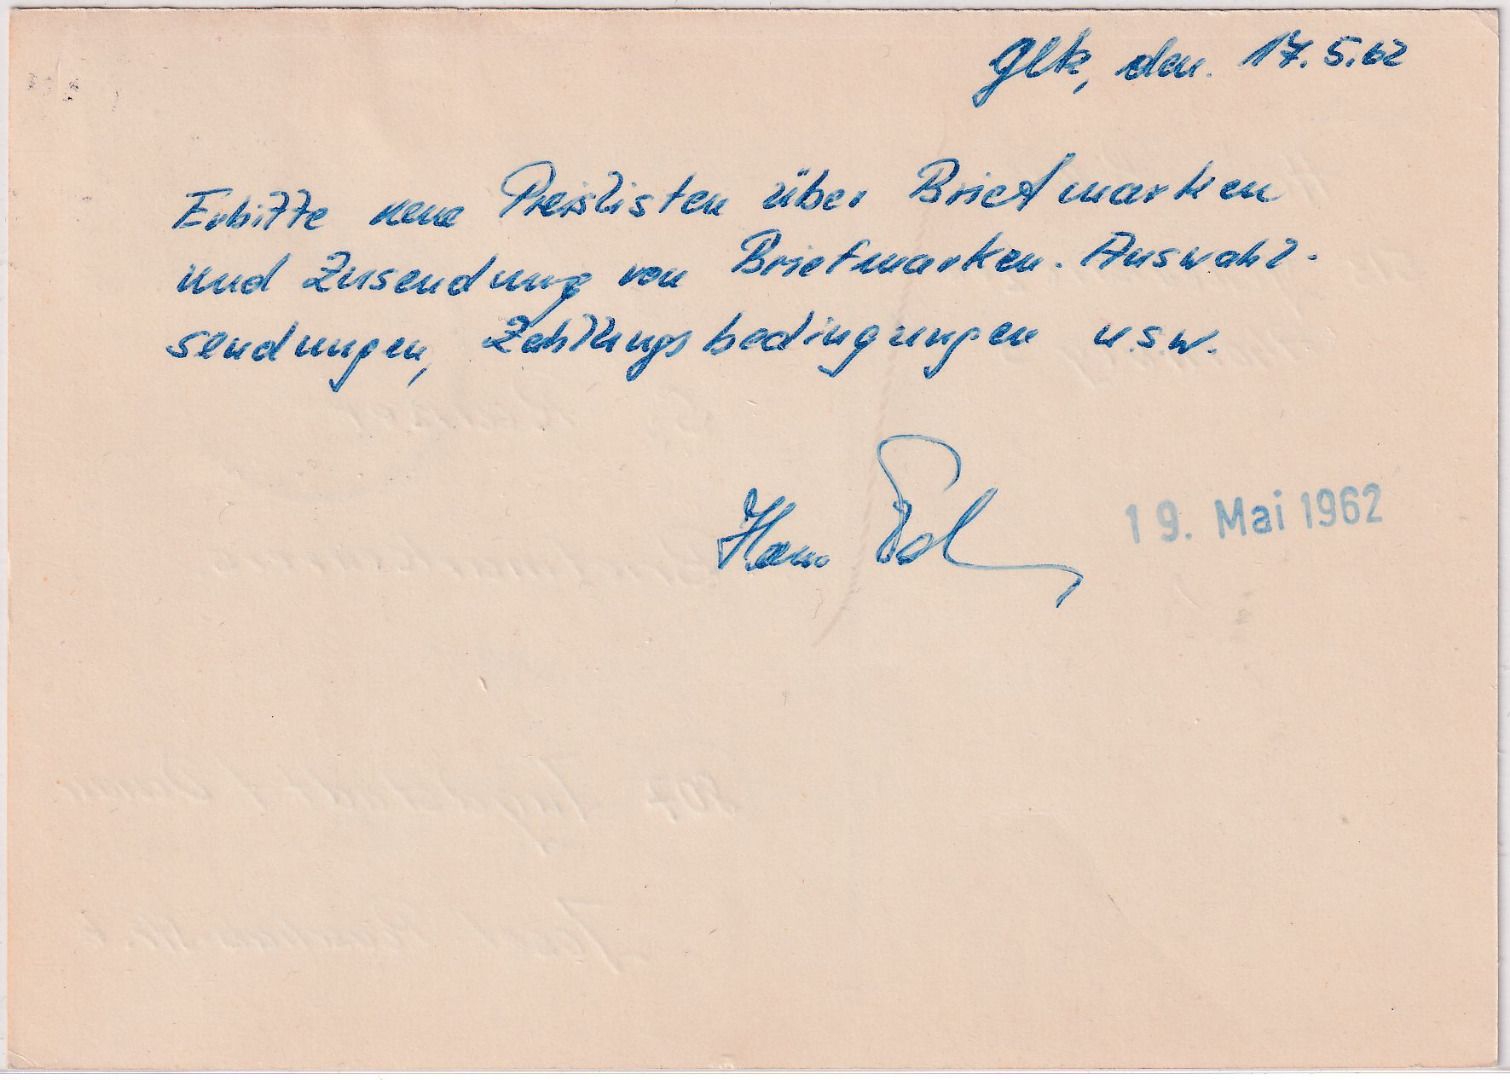 Glk, den. 17.5.62
Erbitte neue Preislisten über Briefmarken
und Zusendung von Briefmarken. Auswahl-
sendungen, Zahlungsbedingungen u.s.w.
Hans
19. Mai 1962